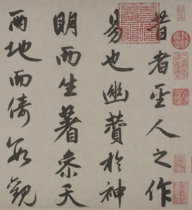 昔者聖人之作
易也幽贊於神
明而生蓍參天
兩地而倚數觀